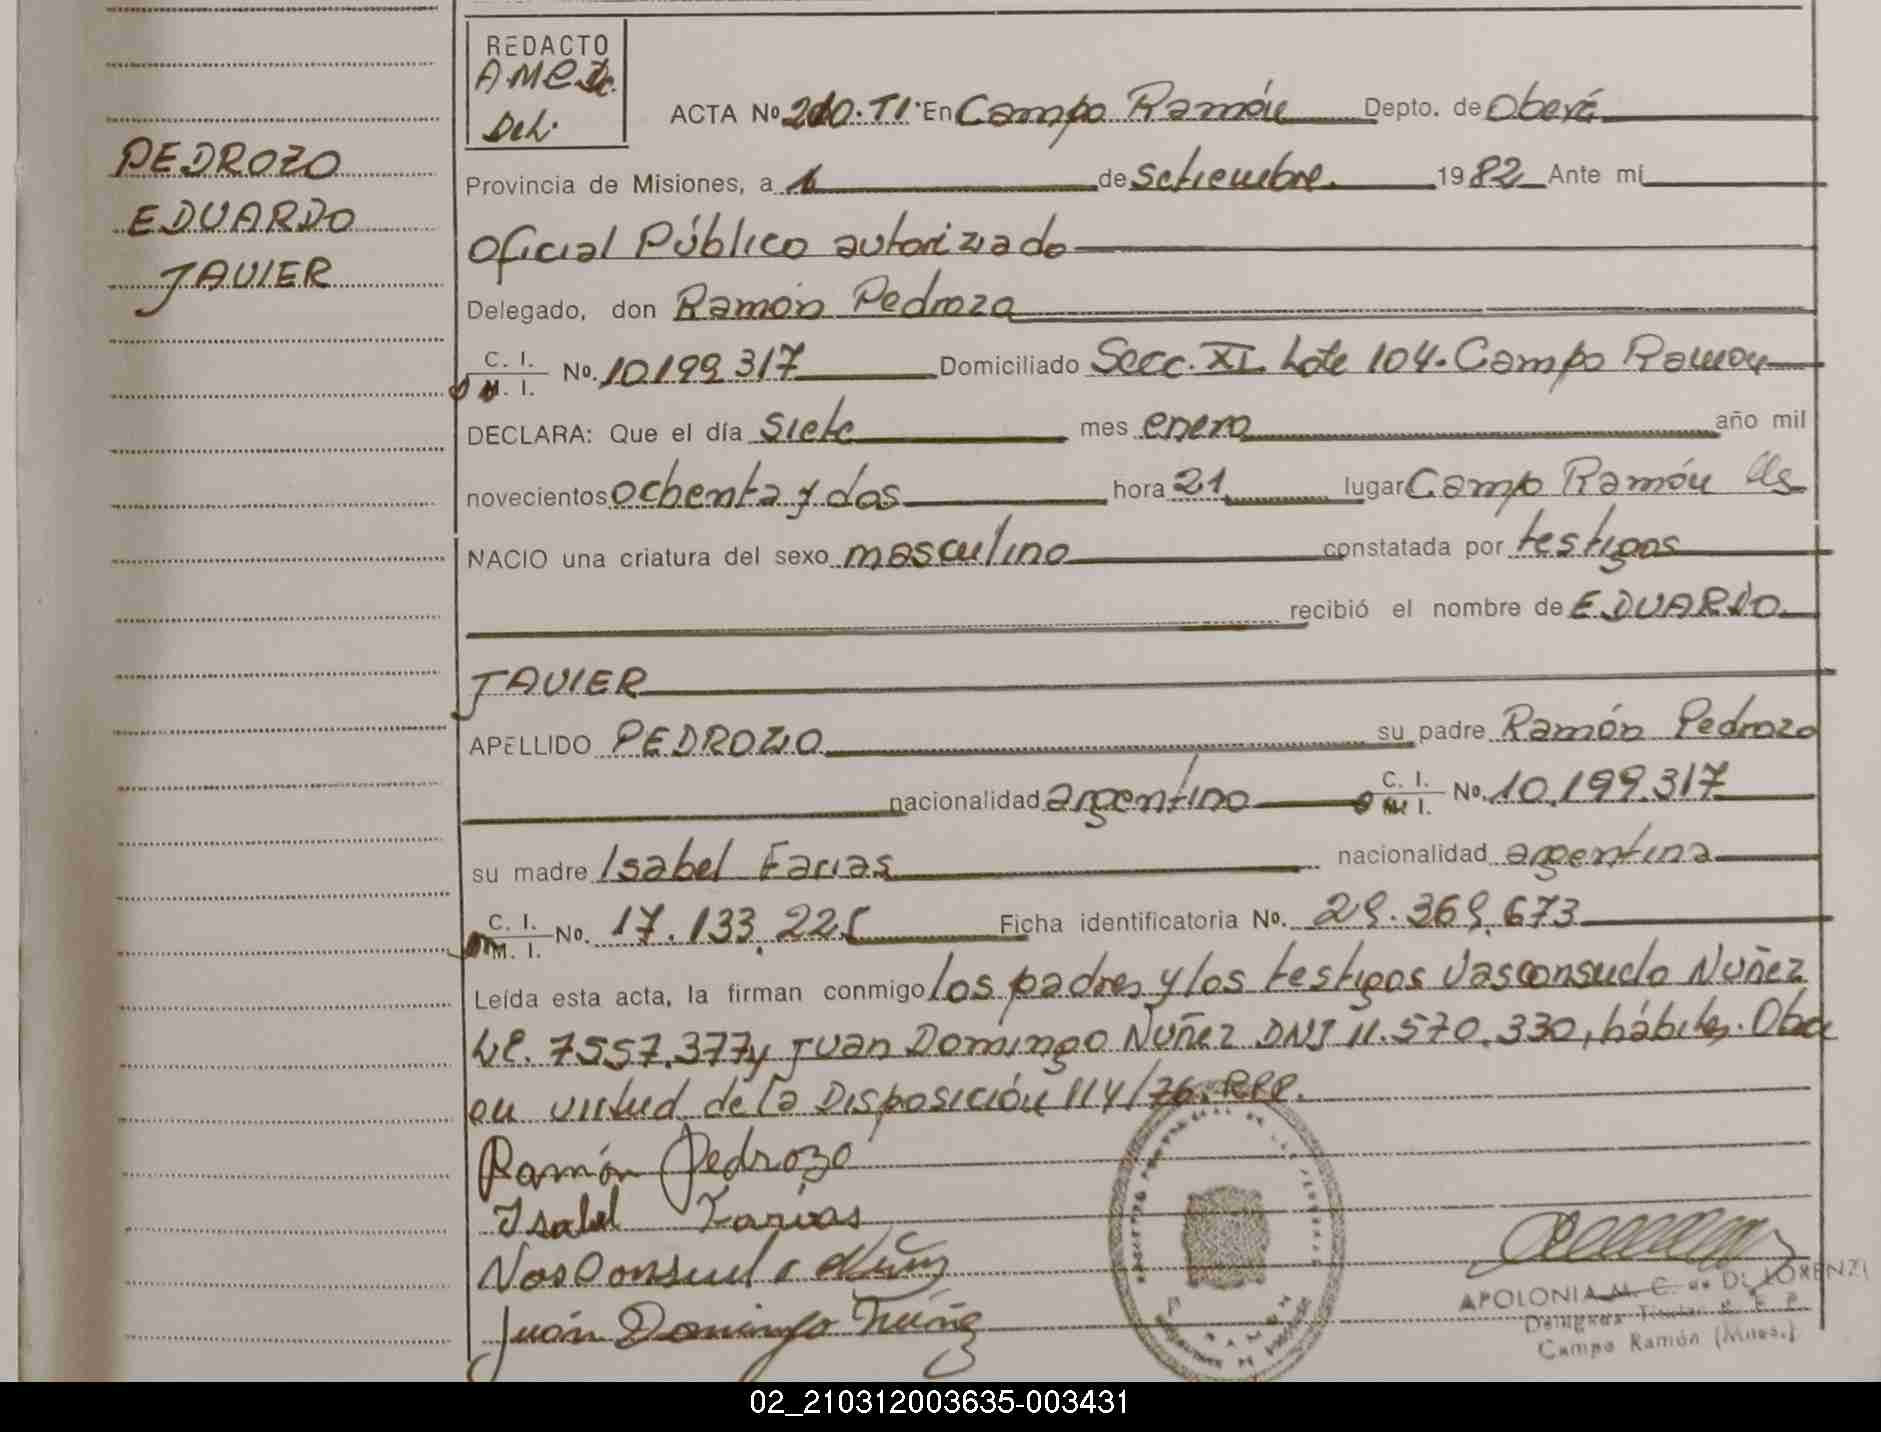 REDACTO
AMC Dc.
Del.
PEDROZO
EDUARDO
JAVIER
ACTA Nº 210.TI. En Campo Ramón Depto. de Oberá
Provincia de Misiones, a 1 de Setiembre. 1982 Ante mí
Oficial Público autorizado
Delegado, don Ramón Pedrozo
C. I. M. I. Nº. 10199317 Domiciliado Secc. XI. Lote 104. Campo Ramon
DECLARA: Que el día siete mes enero año mil
novecientos ochenta y dos hora 21 lugar Campo Ramón
NACIO una criatura del sexo masculino constatada por testigos
recibió el nombre de EDUARDO
JAVIER
APELLIDO PEDROZO su padre Ramón Pedrozo
nacionalidad argentino C. I. M. I. Nº. 10.199.317
su madre Isabel Farias nacionalidad argentina
C. I. M. I. Nº. 17.133.225 Ficha identificatoria Nº. 29.369.673
Leída esta acta, la firman conmigo los padres y los testigos Vasconsuelo Nuñez
LE. 7557.377 y Juan Domingo Nuñez DNI 11.570.330, hábiles.
en virtud de la Disposición 114/76. RPP.
Ramón Pedrozo
Isabel Farias
Juán Domingo Núñez
APOLONIA M. C. de DI LORENZI
Delegada Titular R. P. P.
Campo Ramón (Mnes.)
02_210312003635-003431